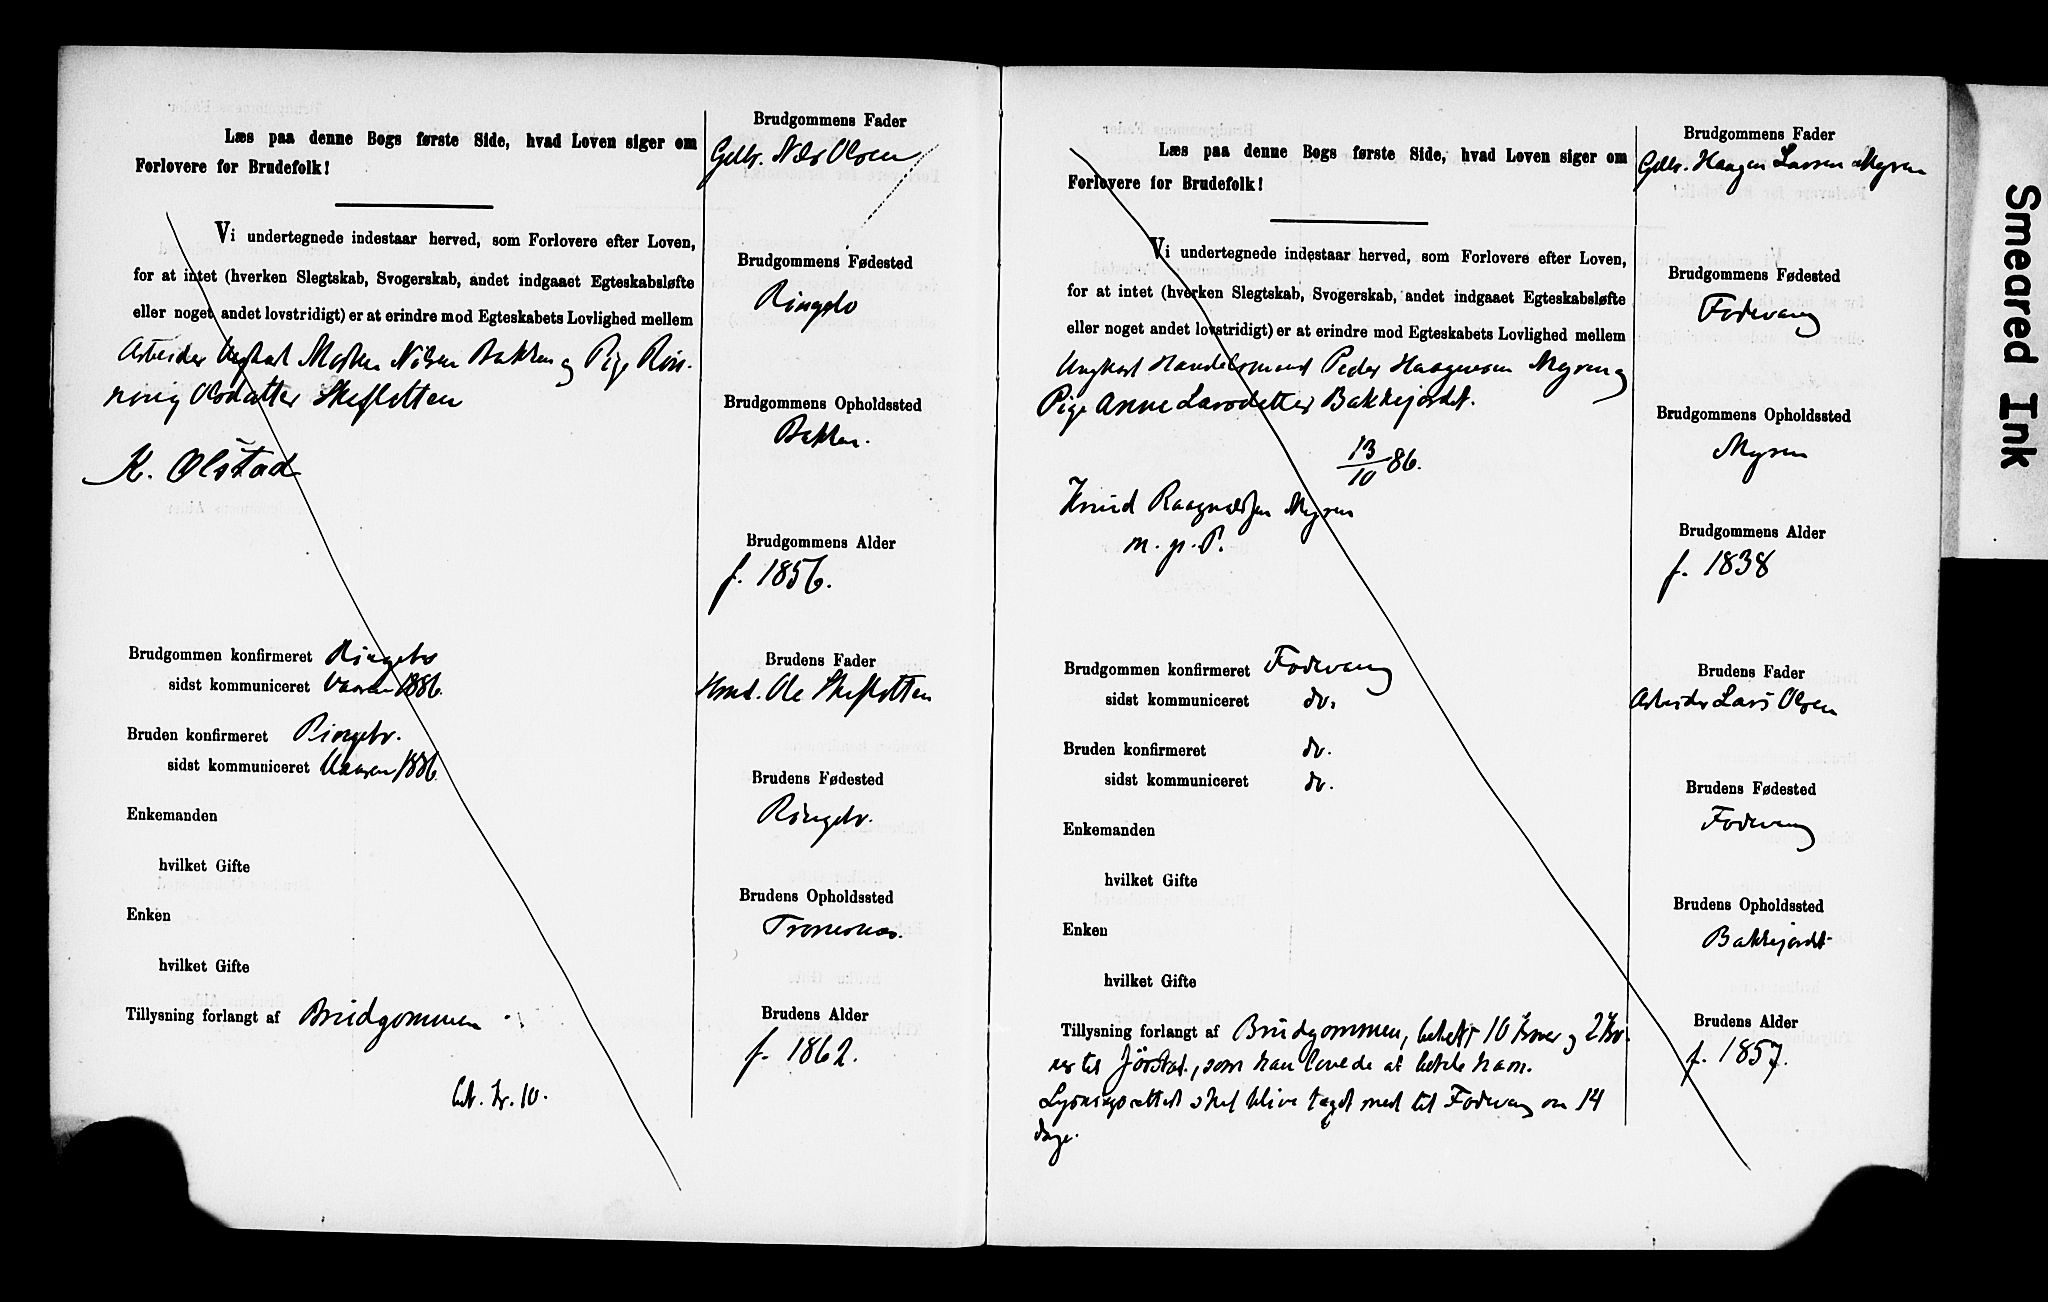 Læs paa denne Bogs første Side, hvad Loven siger om
Forlovere for Brudefolk!
Vi undertegnede indestaar herved, som Forlovere efter Loven,
for at intet (hverken Slegtskab, Svogerskab, andet indgaaet Egteskabsløfte
eller noget andet lovstridigt) er at erindre mod Egteskabets Lovlighed mellem
Arbeider Ungkarl Morten Nilsen Bakken og Pige Rön-
noug Olsdatter Skeflotten
K. Olstad
Brudgommen konfirmeret Ringebo
sidst kommuniceret Vaaren 1886.
Bruden konfirmeret Ringebo.
sidst kommuniceret Vaaren 1886
Enkemanden
hvilket Gifte
Enken
hvilket Gifte
Tillysning forlangt af Brudgommen
bet. Kr. 10.
Brudgommens Fader
Gdbr. Nils Olsen
Brudgommens Fødested
Ringebo
Brudgommens Opholdssted
Bakken.
Brudgommens Alder
f. 1856.
Brudens Fader
Ole Skeflotten
Brudens Fødested
Ringebo.
Brudens Opholdssted
Tromsnes.
Brudens Alder
f. 1862.
Læs paa denne Bogs første Side, hvad Loven siger om
Forlovere for Brudefolk!
Vi undertegnede indestaar herved, som Forlovere efter Loven,
for at intet (hverken Slegtskab, Svogerskab, andet indgaaet Egteskabsløfte
eller noget andet lovstridigt) er at erindre mod Egteskabets Lovlighed mellem
Ungkarl Handelsmand Peder Haagensen Myren og
Pige Anne Larsdatter Bakkejordet.
13/10 86.
Knud Raagnaldsen Myren
m. p. P.
Brudgommen konfirmeret Fodvang
sidst kommuniceret do.
Bruden konfirmeret do.
sidst kommuniceret do.
Enkemanden
hvilket Gifte
Enken
hvilket Gifte
Tillysning forlangt af Brudgommen, betalt 10 Kroner og 2 Kro-
ner til Jörstad, som han lovede at betale ham.
Lysningsattest skal blive taget med til Fodvang om 14
dage.
Brudgommens Fader
Gdbr. Haagen Larsen Myren
Brudgommens Fødested
Fodvang
Brudgommens Opholdssted
Myren
Brudgommens Alder
f. 1838
Brudens Fader
Arbeider Lars Olsen
Brudens Fødested
Fodvang
Brudens Opholdssted
Bakkejordet
Brudens Alder
f. 1857.
Smeared Ink